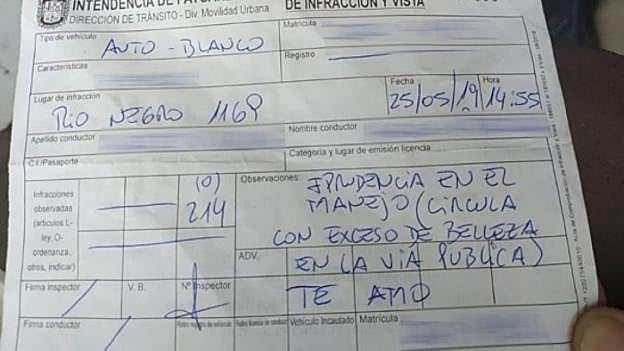 INTENDENCIA DE PAYSAN
DIRECCIÓN DE TRÁNSITO - Div. Movilidad Urbana
DE INFRACCIÓN Y VISTA
Tipo de vehículo
AUTO - BLANCO
Matrícula
Características
Registro
Lugar de infracción
RIO NEGRO 1169
Fecha
25/05/19
Hora
14:55
Apellido conductor
Nombre conductor
C.I./Pasaporte
Categoría y lugar de emisión licencia
Infracciones
observadas
(artículos L-
ley, O-
ordenanza,
otros, indicar)
(O)
214
Observaciones:
IPRUDENCIA EN EL
MANEJO (CIRCULA
CON EXCESO DE BELLEZA
ADV.
EN LA VIA PUBLICA)
Firma inspector
V. B.
Nº Inspector
TE AMO
Firma conductor
Vehículo Incautado
Matrícula